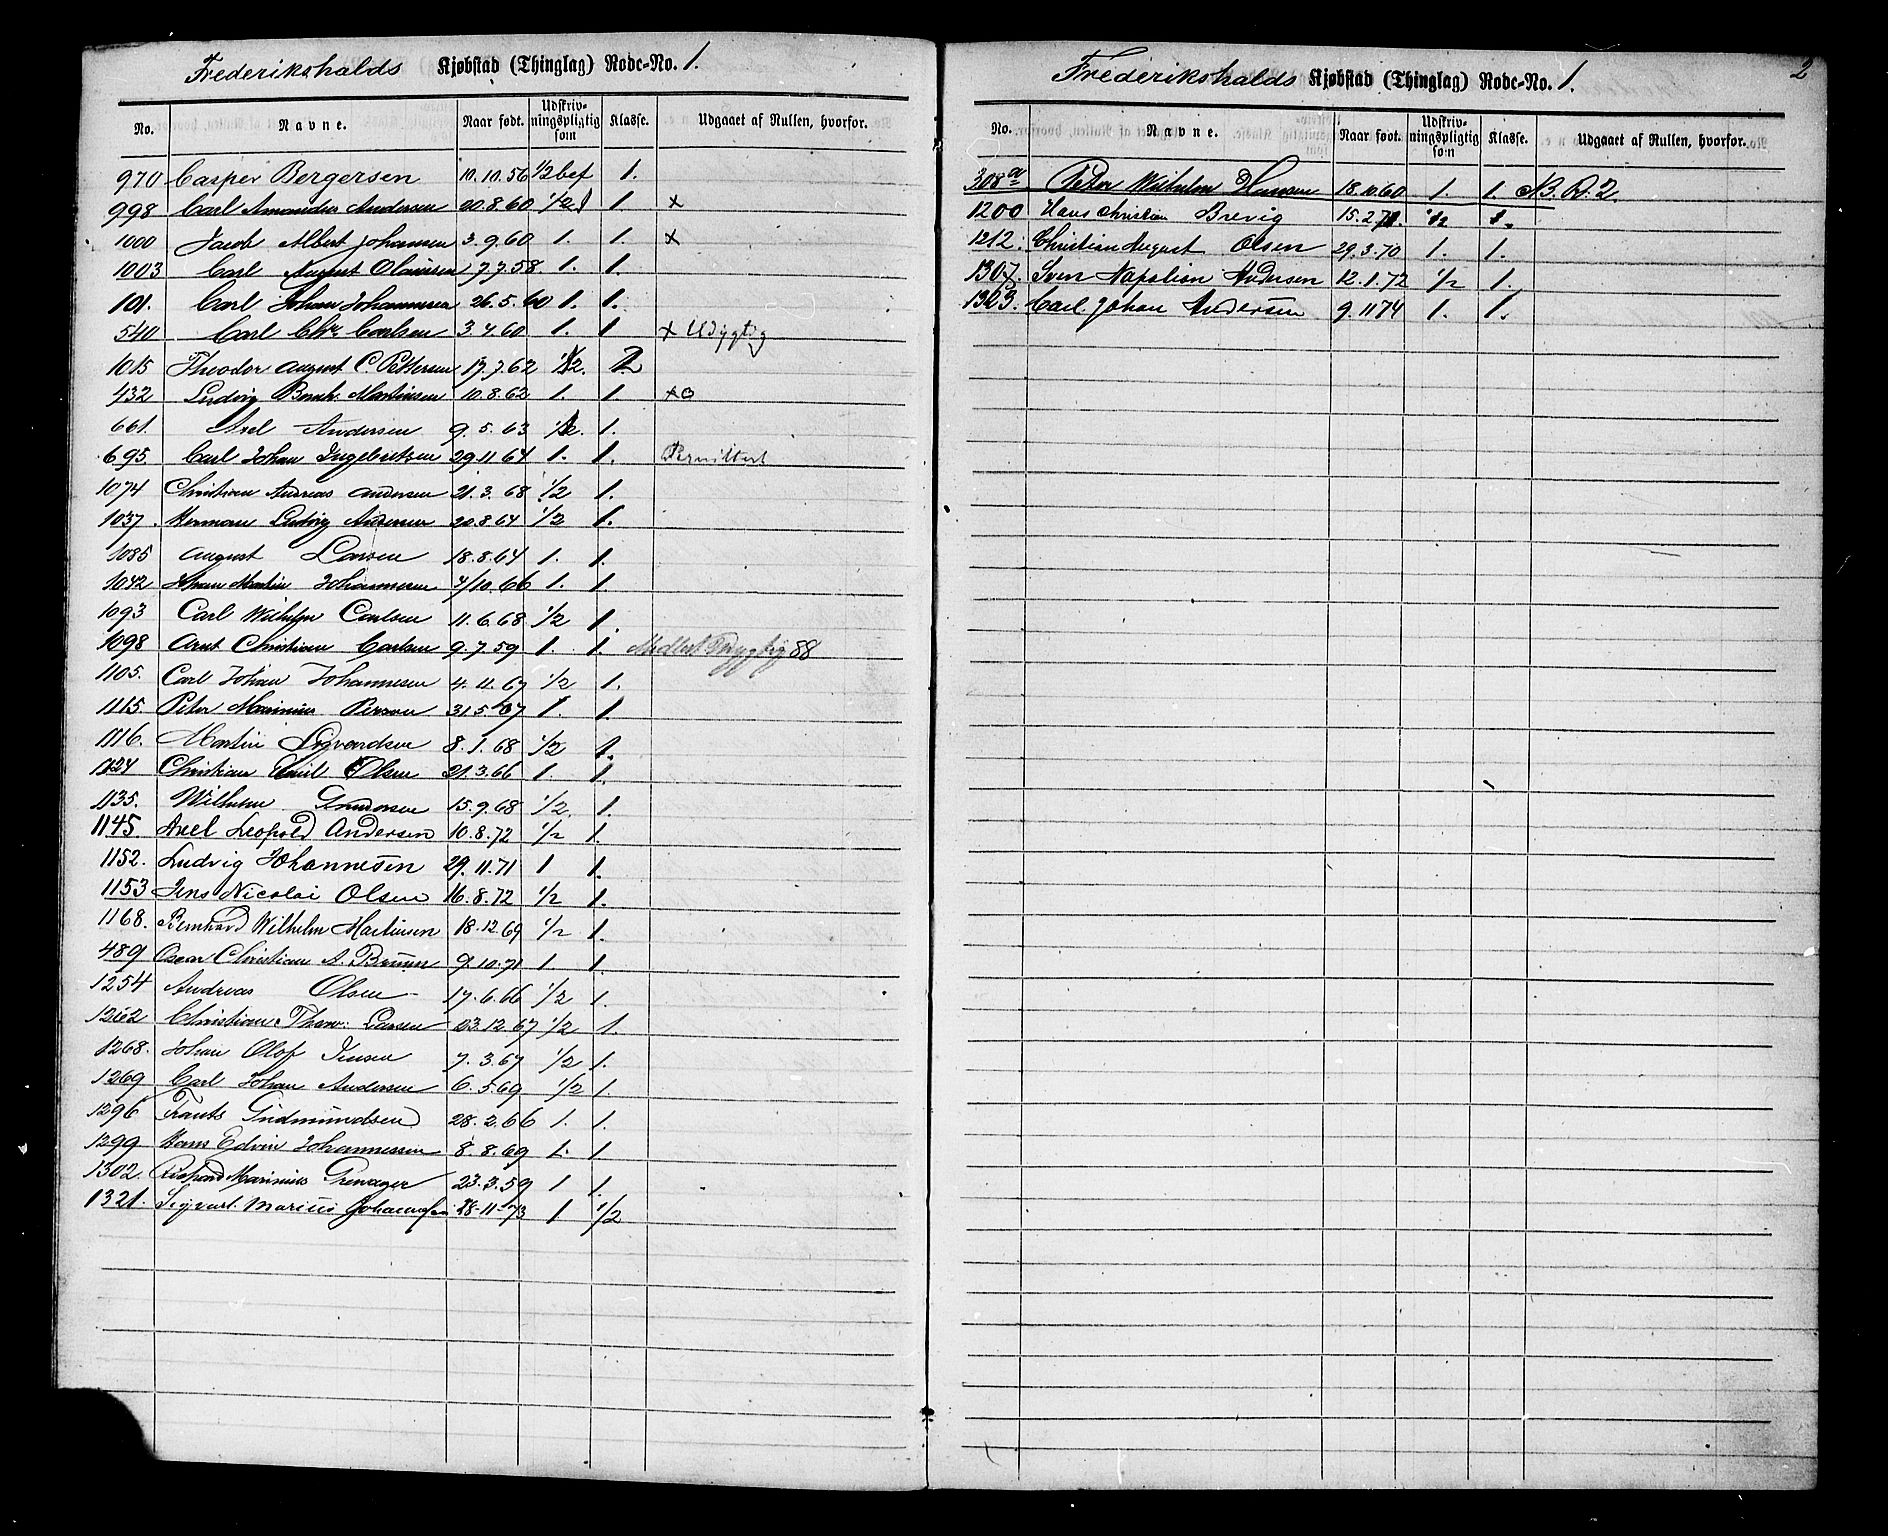 Frederikshalds Kjøbstad (Thinglag) Rode-No. 1.
No. Navne. Naar født. Udskriv-ningspligtig som Klasse. Udgaaet af Rullen, hvorfor.
970 Casper Bergersen 10.10.56 1/2 bef 1.
998 Carl Amandus Andersen 20.8.60 1/2 1. x
1000 Jacob Albert Johansen 3.9.60 1. 1. x
1003 Carl August Olaussen 7.7.58 1. 1.
101. Carl Johan Johannesen 26.5.60 1. 1.
540 Carl Chr. Carlsen 3.4.60 1. 1 x Udygtig
1015 Theodor August C. Pettersen 17.7.62 1/2. 2
432 Ludvig Bernh. Martinsen 10.8.62 1. 1. xo
661. Axel Andersen 9.5.63 1/2. 1.
695. Carl Johan Ingebretsen 29.11.64 1. 1.
1074 Christian Andreas Andersen 21.3.68 1/2 1.
1037. Herman Ludvig Andersen 20.8.64 1/2 1.
1085 August Larsen 18.8.64 1. 1.
1042 Johan Martin Johannesen 4/10.66 1. 1.
1093 Carl Wilhelm Carlsen 11.6.68 1/2 1.
1098 Arnt Christian Carlsen 9.7.59 1. 1. 88
1105. Carl Johan Johannesen 4.11.67 1/2 1.
1115. Peter Marinius Person 31.5.67 1. 1.
1116. Martin Sigvardsen 8.1.68 1/2 1.
1124 Christian Emil Olsen 21.3.66 1. 1.
1135. Wilhelm Gundersen 15.9.68 1/2. 1.
1145 Axel Leopold Andersen 10.8.72 1/2 1.
1152. Ludvig Johannesen 29.11.71 1 1.
1153 Jens Nicolai Olsen 16.8.72 1/2 1.
1168. Bernhard Wilhelm Martinsen 18.12.69 1/2 1.
489 Oscar Christian A. Bruun 9.10.71 1 1.
1254 Andreas Olsen 17.6.66 1/2 1.
1262 Christian Thorv. Larsen 23.12.67 1/2 1.
1268. Johan Olof Jensen 7.3.67 1/2 1.
1269 Carl Johan Andersen 6.5.69 1/2 1.
1296 Frants Gudmundsen 28.2.66 1. 1.
1299 Hans Edvin Johannessen 8.8.69 1. 1
1302. Richard Marinius Grenager 23.3.59 1 1.
1321. Sigvart Marius Johannesen 28-11-73 1 1/2
2
Frederikshalds Kjøbstad (Thinglag) Rode-No. 1.
No. Navne. Naar født. Udskriv-ningspligtig som Klasse. Udgaaet af Rullen, hvorfor.
308a Peter Wilhelm Hansen 18.10.60 1. 1.
1200 Hans Christian Brevig 15.2.71. 1/2 1.
1212. Christian August Olsen 29.3.70 1. 1.
1307. Sven Napolion Andersen 12.1.72 1/2 1.
1323. Carl Johan Andersen 9.11 74 1. 1.